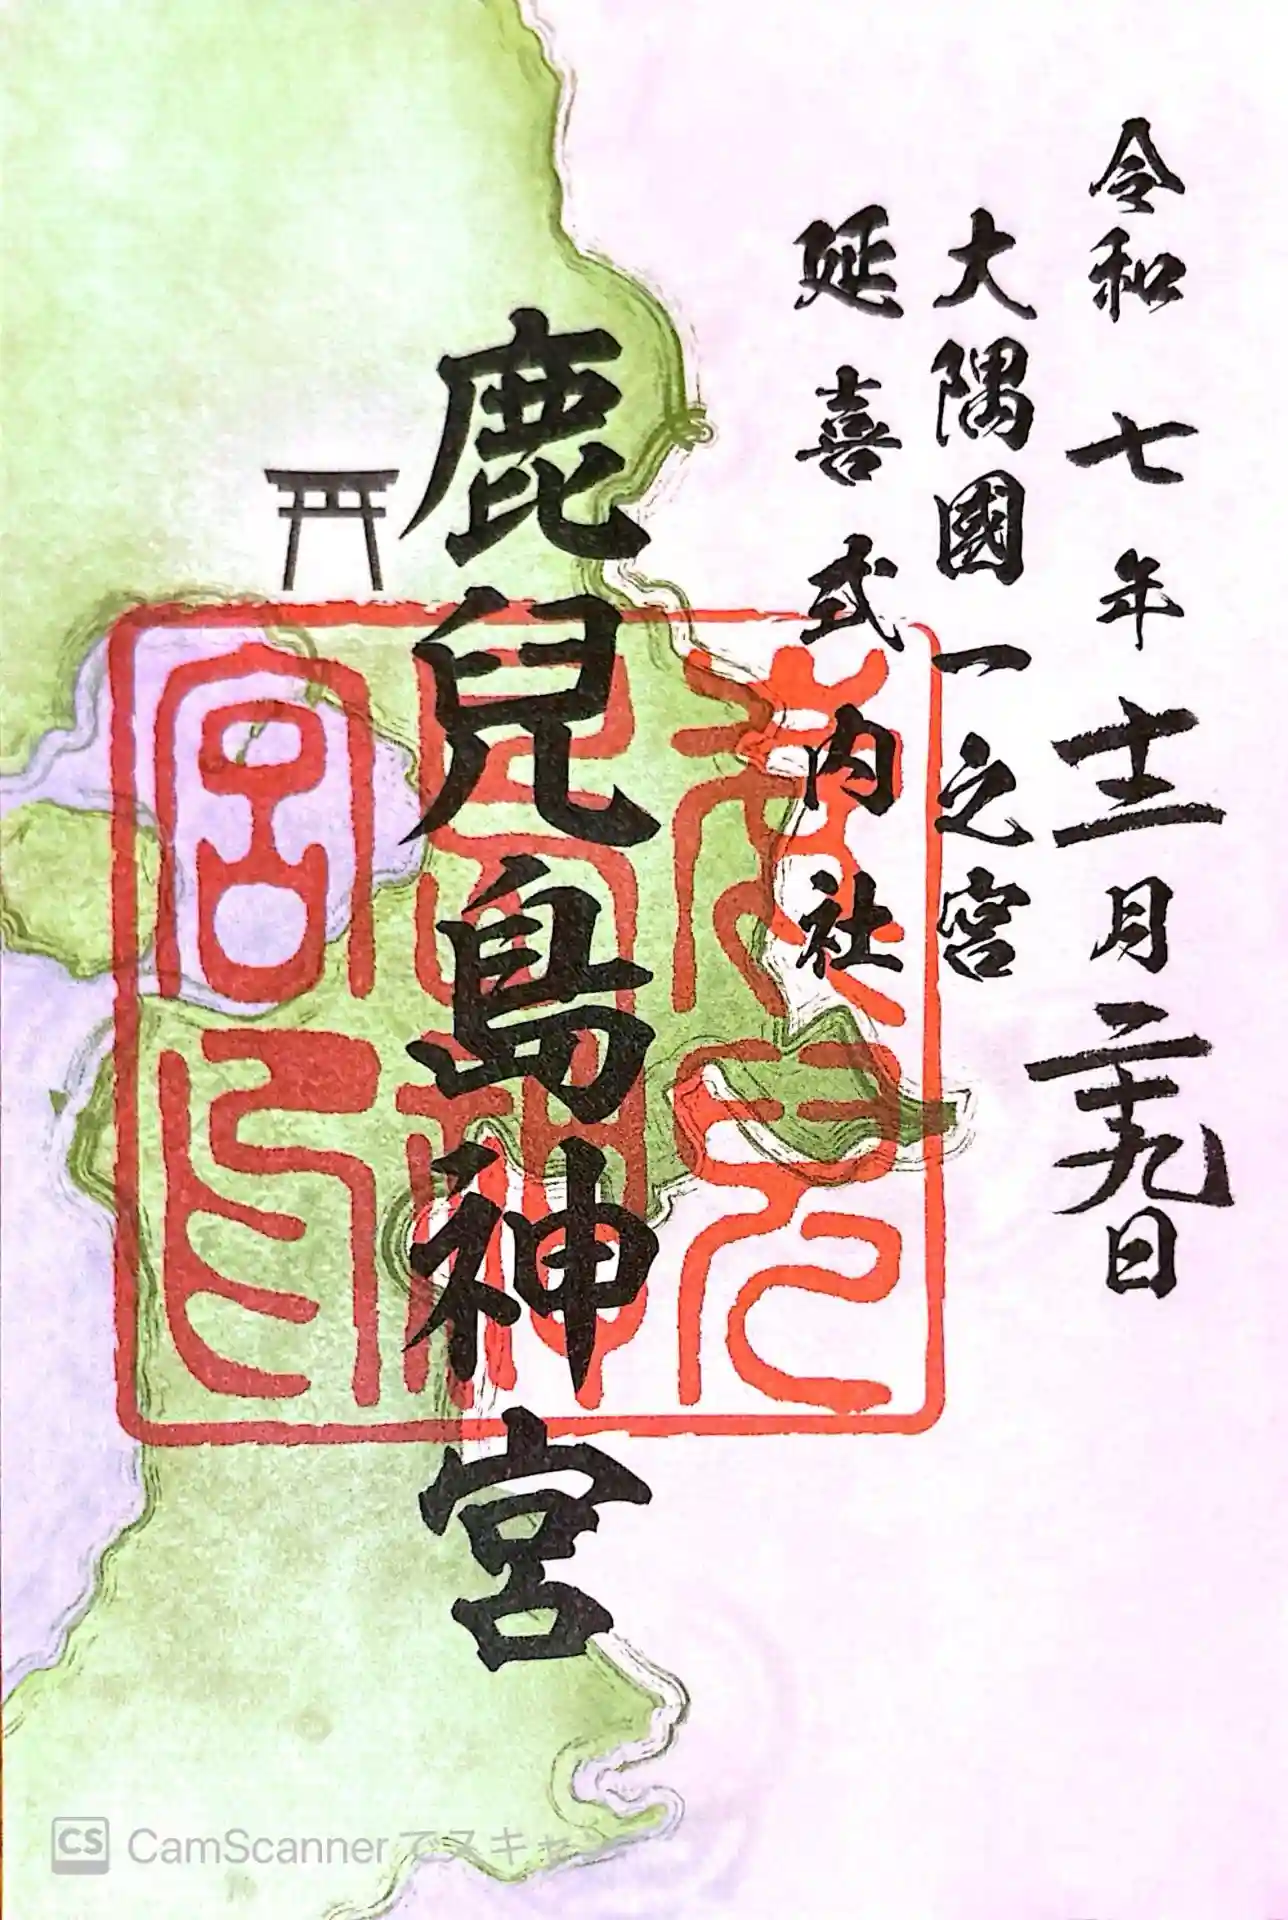 令和七年十二月二十九日
大隅國一之宮
延喜式内社
鹿兒島神宮
CS CamScannerでスキャン